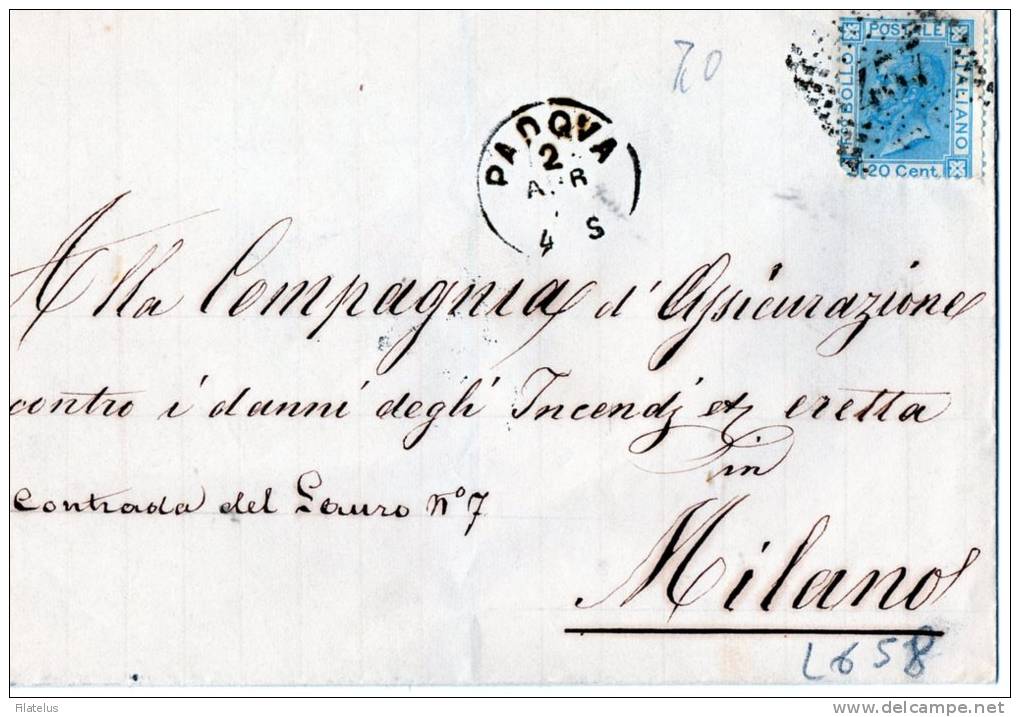 70
BOLLO POSTALE ITALIANO
20 Cent.
PADOVA
2
APR
4 S
Alla Compagnia d'Assicurazione
contro i danni degli Incendj etc eretta
in
Contrada del Lauro N.º 7
Milano
L658
Filatelus
http://www.delcampe.net